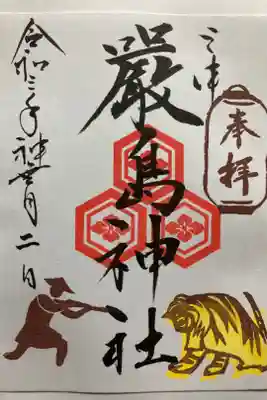 三津
奉拝
嚴島神社
令和三年神無月二日